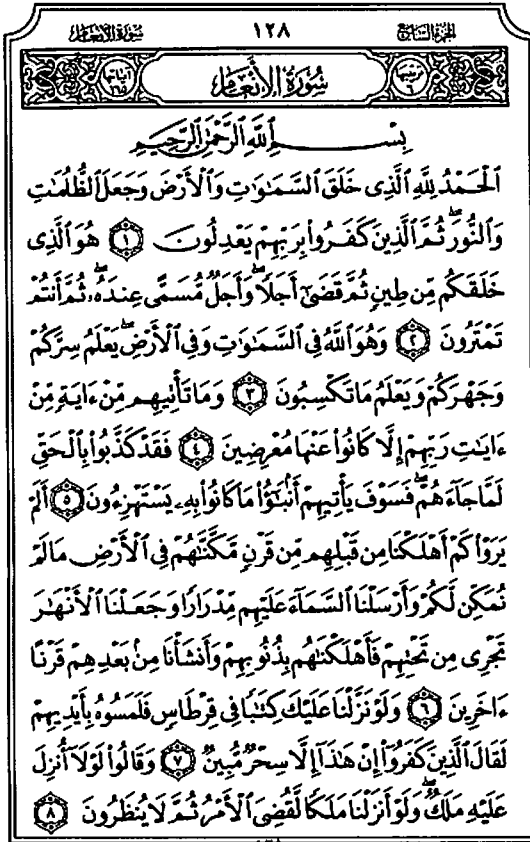 سورة الأنعام ١٢٨ الجزء السابع
ترتيبها ٦ سورة الأنعام آياتها ١٦٥
بِسْمِ اللَّهِ الرَّحْمَٰنِ الرَّحِيمِ
الْحَمْدُ لِلَّهِ الَّذِى خَلَقَ السَّمَٰوَٰتِ وَالْأَرْضَ وَجَعَلَ الظُّلُمَٰتِ
وَالنُّورَ ۖ ثُمَّ الَّذِينَ كَفَرُوا۟ بِرَبِّهِمْ يَعْدِلُونَ ١ هُوَ الَّذِى
خَلَقَكُم مِّن طِينٍ ثُمَّ قَضَىٰٓ أَجَلًا ۖ وَأَجَلٌ مُّسَمًّى عِندَهُۥ ۖ ثُمَّ أَنتُمْ
تَمْتَرُونَ ٢ وَهُوَ اللَّهُ فِى السَّمَٰوَٰتِ وَفِى الْأَرْضِ ۖ يَعْلَمُ سِرَّكُمْ
وَجَهْرَكُمْ وَيَعْلَمُ مَا تَكْسِبُونَ ٣ وَمَا تَأْتِيهِم مِّنْ ءَايَةٍ مِّنْ
ءَايَٰتِ رَبِّهِمْ إِلَّا كَانُوا۟ عَنْهَا مُعْرِضِينَ ٤ فَقَدْ كَذَّبُوا۟ بِالْحَقِّ
لَمَّا جَآءَهُمْ ۖ فَسَوْفَ يَأْتِيهِمْ أَنۢبَٰٓؤُا۟ مَا كَانُوا۟ بِهِۦ يَسْتَهْزِءُونَ ٥ أَلَمْ
يَرَوْا۟ كَمْ أَهْلَكْنَا مِن قَبْلِهِم مِّن قَرْنٍ مَّكَّنَّٰهُمْ فِى الْأَرْضِ مَا لَمْ
نُمَكِّن لَّكُمْ وَأَرْسَلْنَا السَّمَآءَ عَلَيْهِم مِّدْرَارًا وَجَعَلْنَا الْأَنْهَٰرَ
تَجْرِى مِن تَحْتِهِمْ فَأَهْلَكْنَٰهُم بِذُنُوبِهِمْ وَأَنشَأْنَا مِنۢ بَعْدِهِمْ قَرْنًا
ءَاخَرِينَ ٦ وَلَوْ نَزَّلْنَا عَلَيْكَ كِتَٰبًا فِى قِرْطَاسٍ فَلَمَسُوهُ بِأَيْدِيهِمْ
لَقَالَ الَّذِينَ كَفَرُوٓا۟ إِنْ هَٰذَآ إِلَّا سِحْرٌ مُّبِينٌ ٧ وَقَالُوا۟ لَوْلَآ أُنزِلَ
عَلَيْهِ مَلَكٌ ۖ وَلَوْ أَنزَلْنَا مَلَكًا لَّقُضِىَ الْأَمْرُ ثُمَّ لَا يُنظَرُونَ ٨